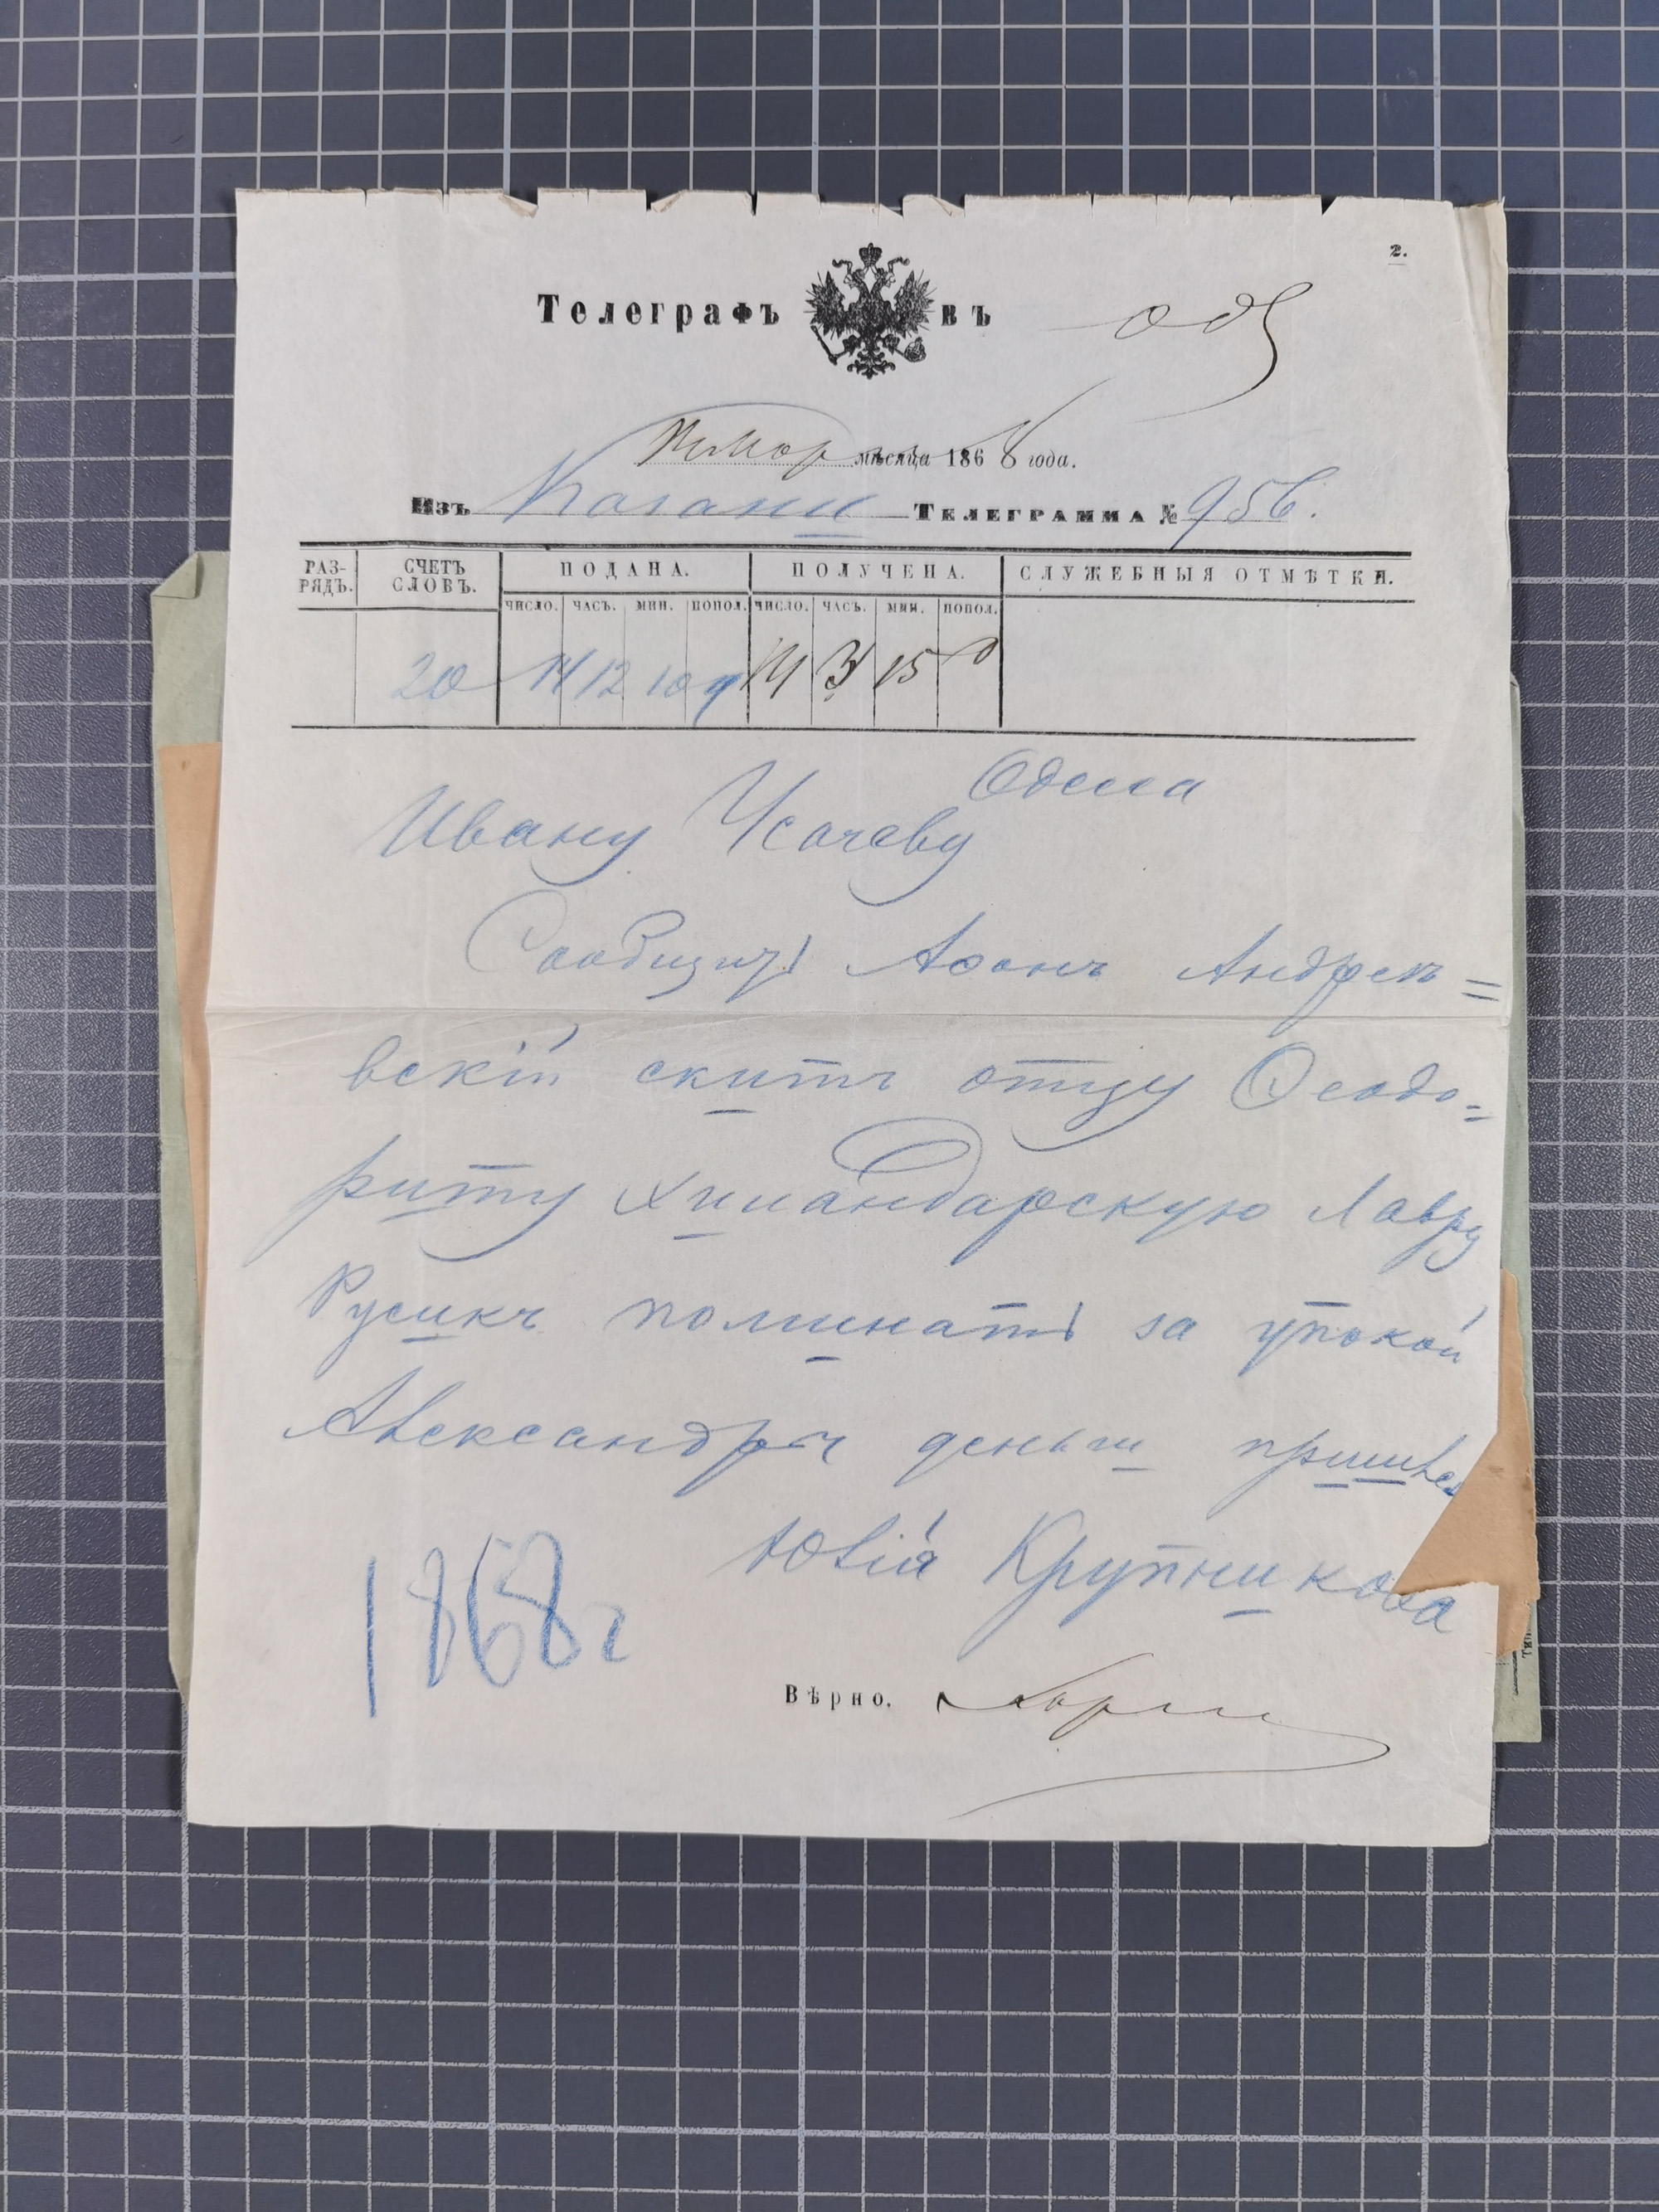 2.
Телеграфъ въ Од
мѣсяца 1868 года.
Изъ Казани Телеграмма № 956.
РАЗРЯДЪ. СЧЕТЪ СЛОВЪ. ПОДАНА. ПОЛУЧЕНА. СЛУЖЕБНЫЯ ОТМѢТКИ.
ЧИСЛО. ЧАСЪ. МИН. ПОПОЛ. ЧИСЛО. ЧАСЪ. МИН. ПОПОЛ.
20 14 12 10 14 3 15
Одесса
Ивану Усачеву
Сообщить Афонъ Андреѣ=
вскій скитъ отцу Ѳеодо=
риту Хиландарскую Лавру
Русикъ поминать за упокой
Александра деньги
Юлія Крупникова
1868г
Вѣрно.